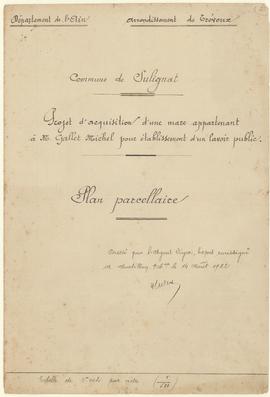 Département de l'Ain
arrondissement de Trévoux
Commune de Sulignat
Projet d'acquisition d'une mare appartenant
à M. Gallet Michel pour établissement d'un lavoir public.
Plan parcellaire
Dressé par l'Agent Voyer, soussigné
le 14 Août 1922
Echelle de par mètre